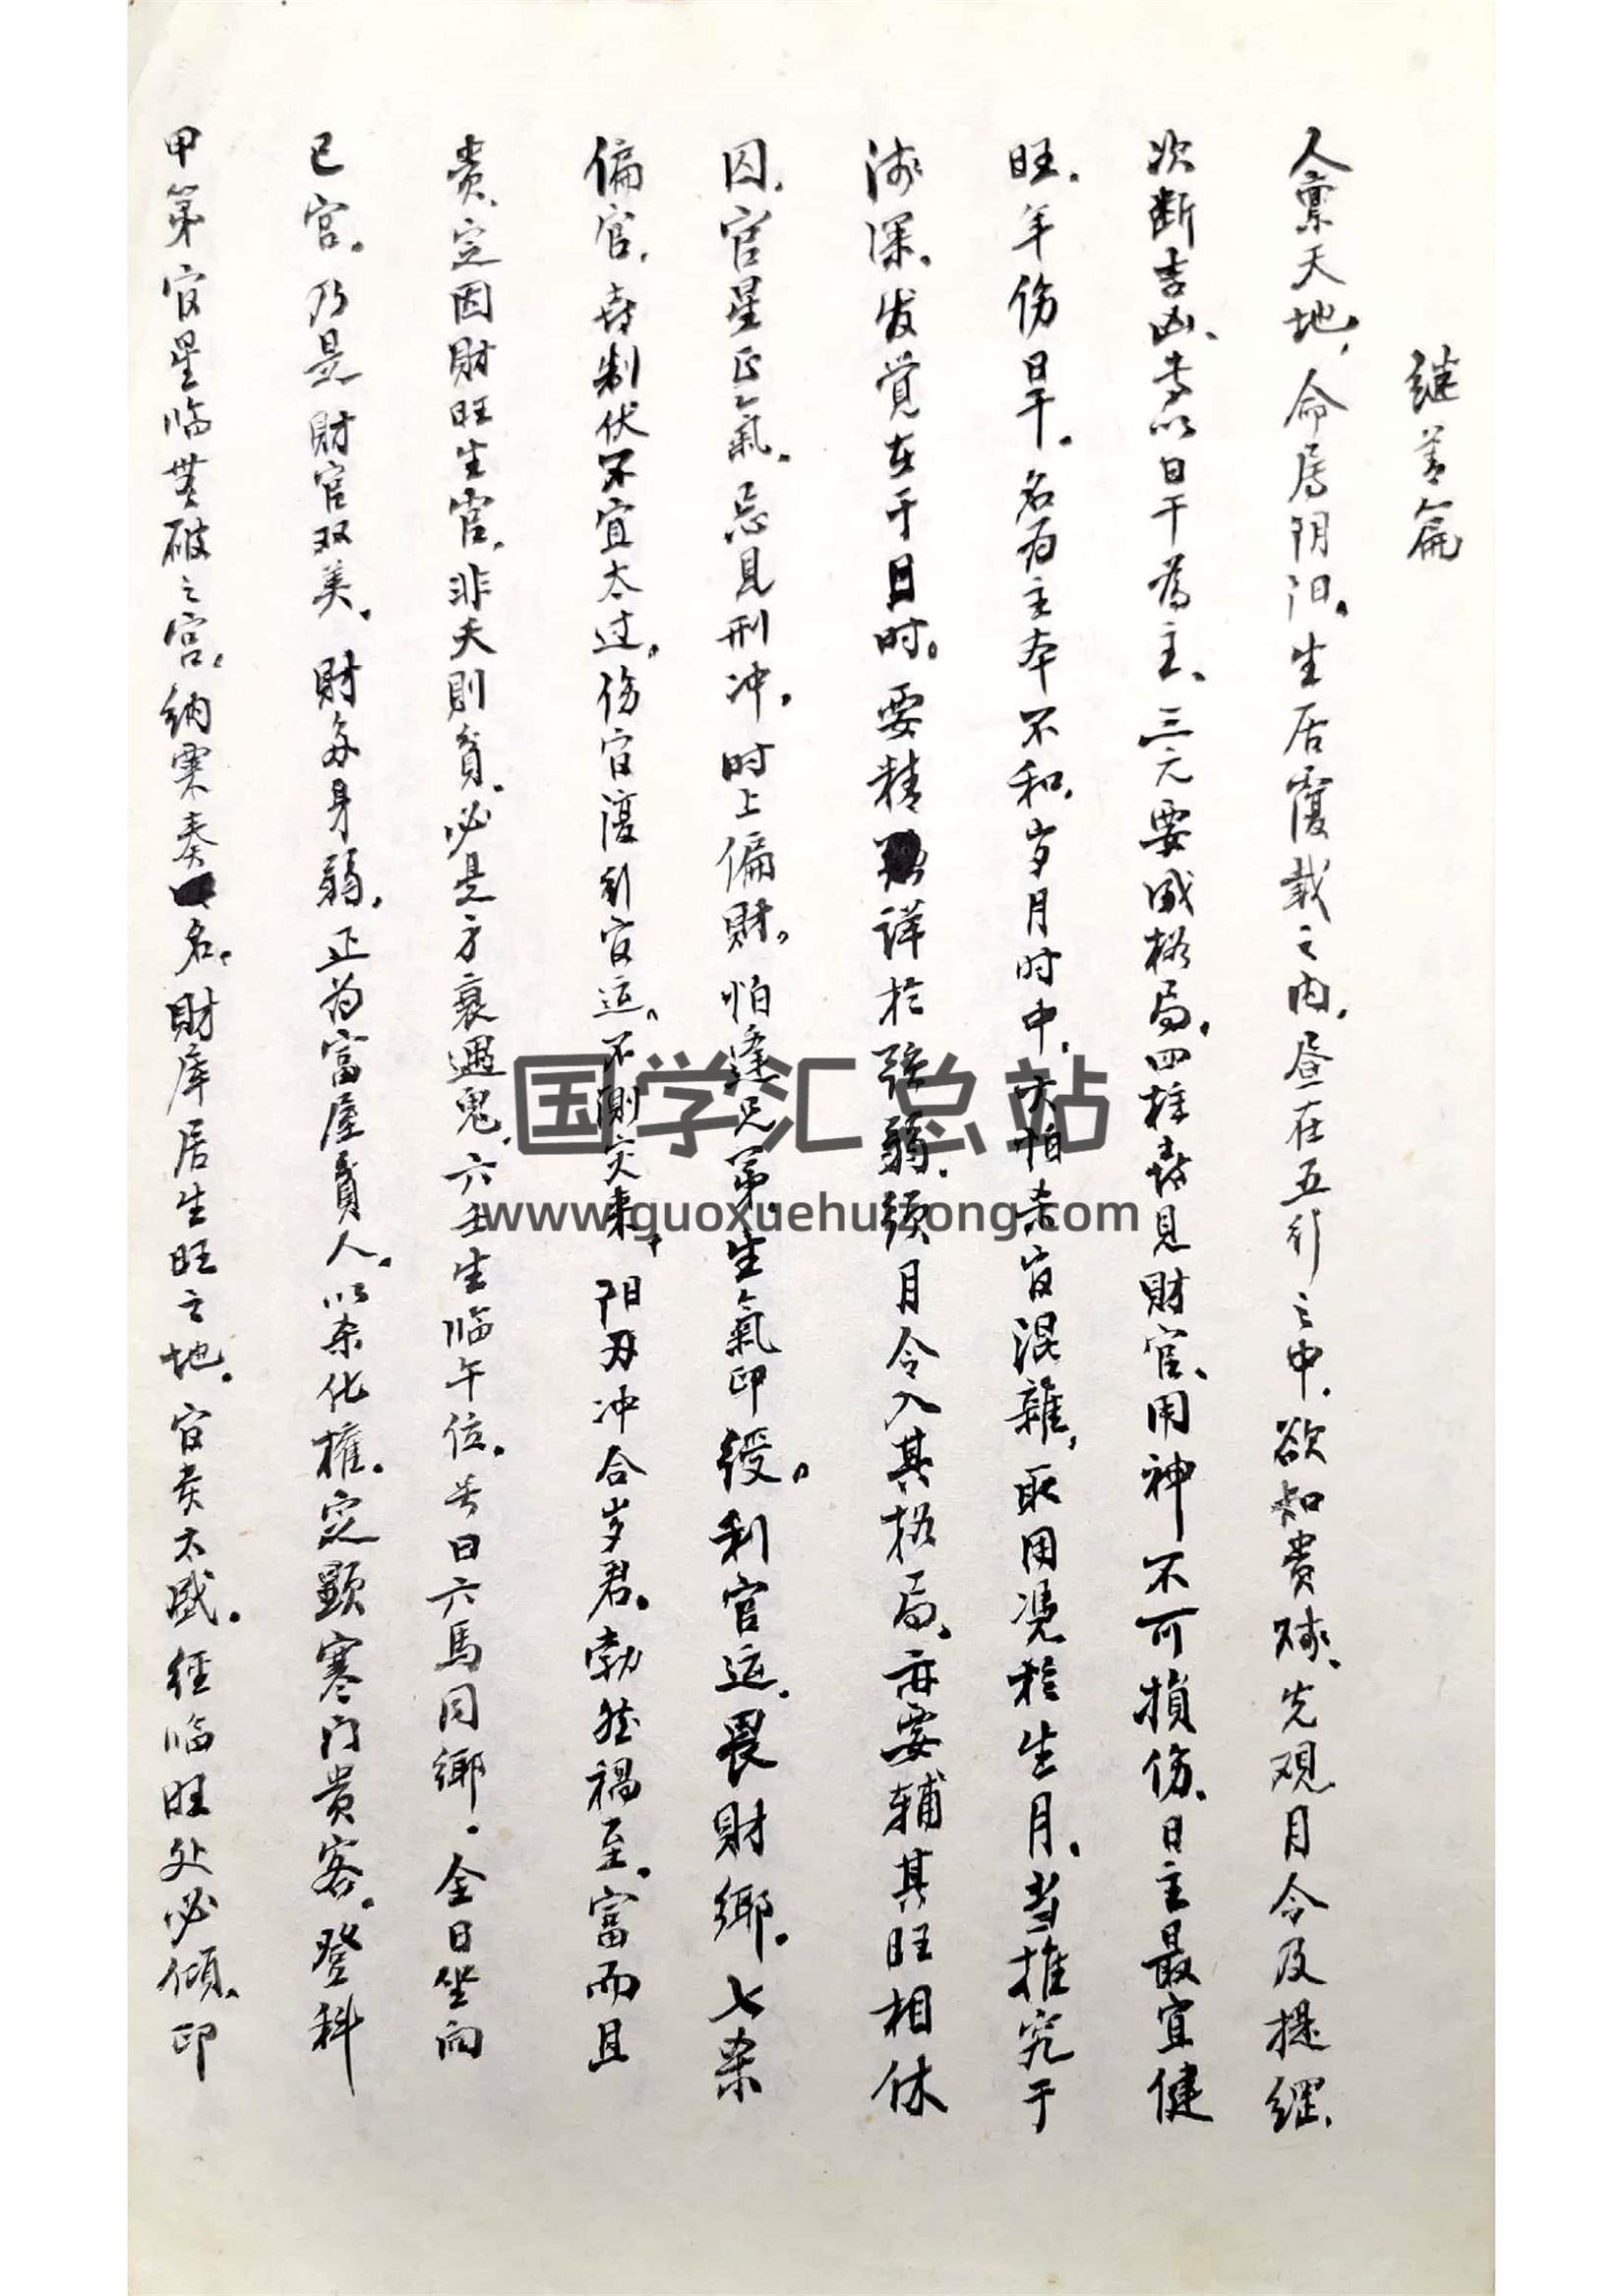 继善篇
人禀天地，命属阴阳。生居覆载之内，昼在五行之中，欲知贵贱、先观月令及提纲、
次断吉凶、专以日干為主、三元要成格局，四柱喜見財官、用神不可損伤、日主最宜健
旺。年伤日干。名为主本不和，岁月时中，大怕杀官混雜，取用憑於生月、当推究于
浅深。发觉在于日时。要精详於强弱，须月令入其格局、亦要辅其旺相休
囚。官星正氣。忌見刑冲，时上偏財。怕逢兄弟，生氣印绶。利官运。畏財鄉。七杀
偏官，喜制伏不宜太过。伤官復行官运。不測灾来，阳刃冲合岁君。勃然禍至。富而且
贵、定因財旺生官，非夭則貧，必是方衰遇鬼，六壬生临午位。号曰六馬同鄉。全日坐向
巳宫。乃是財官双美。財多身弱，正为富屋貧人。以杀化權。定顯寒门贵客。登科
甲第官星临無破之宫，纳粟奏名。財库居生旺之地。官贵太盛。經临旺处必傾、印
国学汇总站
www.guoxuehuizong.com